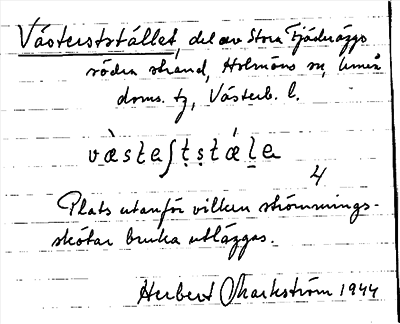 Västerststället, del av Stora Fjäderäggs
södra strand, Holmöns sn, Umeå
doms. tg, Västerb. l.
væ̀steʃṭṣtǽḷe
4
Plats utanför vilken strömmings-
skötar bruka utläggas.
Herbert Markström 1944